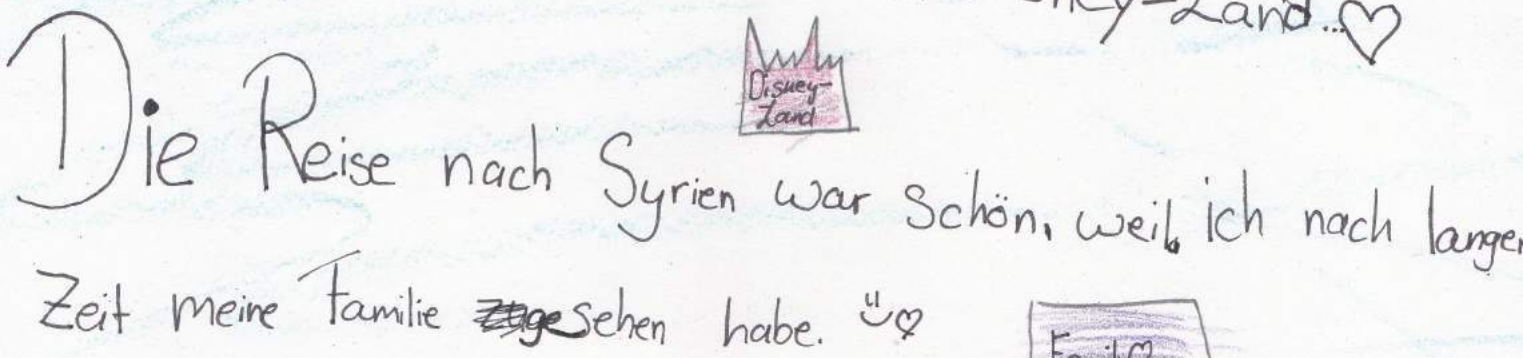 ney-Land...♡
Disney-
Land
Die Reise nach Syrien war schön, weil ich nach langer
Zeit meine Familie gesehen habe. ü♡